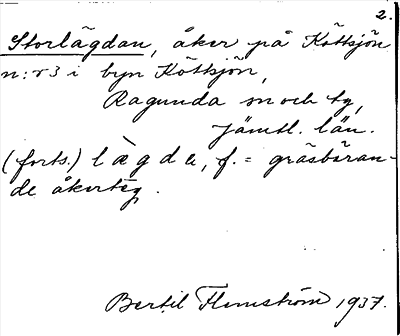 2.
Storlägdan, åker på Köttsjön
n:r 3 i byn Köttsjön,
Ragunda sn och tg,
Jämtl. län.
(forts.) lägda, f. = gräsbäran-
de åkerteg.
Bertil Flemström 1937.